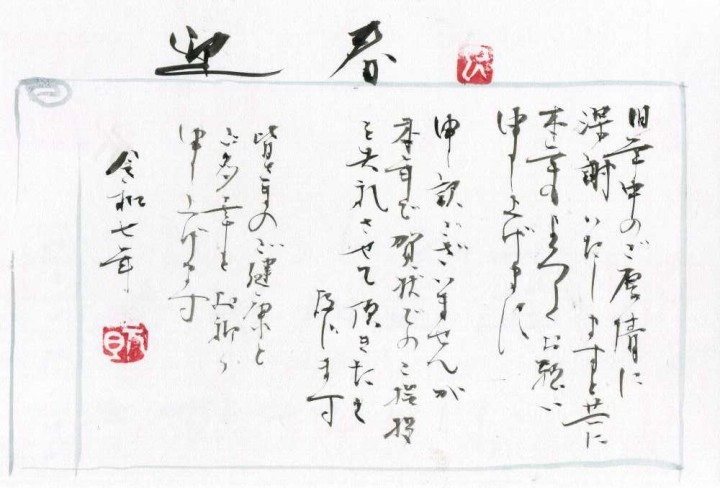 迎春
旧年中のご厚情に
深謝いたしますと共に
本年もよろしくお願い
申し上げます
申し訳ございませんが
本年で賀状でのご挨拶
を失礼させて頂きたく
存じます
皆さまのご健康と
ご多幸をお祈り
申し上げます
令和七年